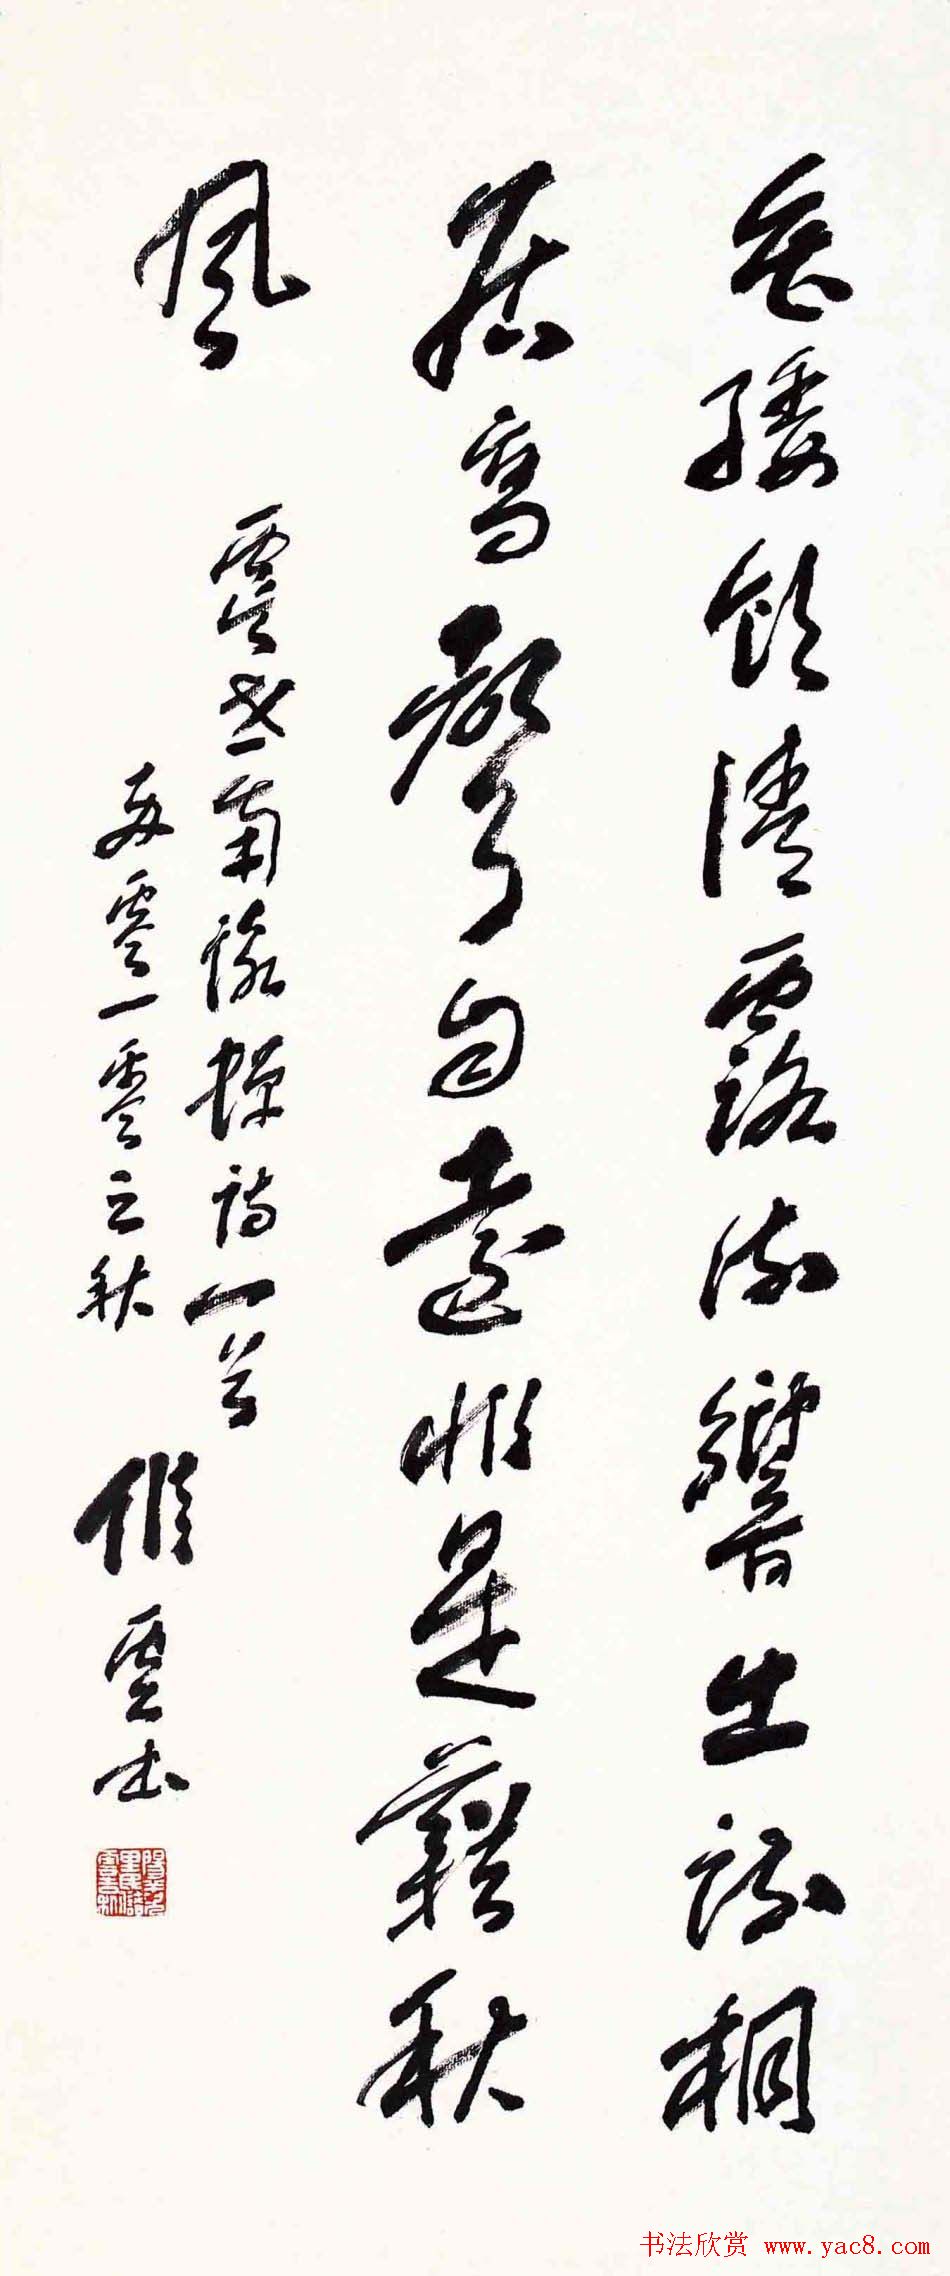 垂緌飲清露流響出疏桐
居高聲自遠非是藉秋
風
虞世南詠蟬詩一首
零一零之秋 儲雲書
书法欣赏 www.yac8.com